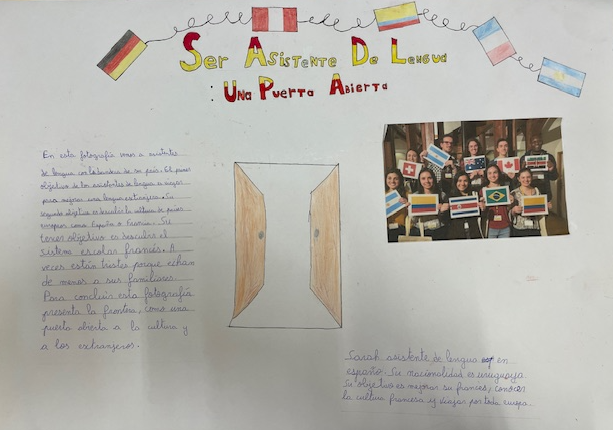 Ser Asistente De Lengua
: Una Puerta Abierta
En esta fotografía vemos a asistentes
de lengua con la bandera de su país. El primer
objetivo de los asistentes de lengua a mejor
para mejorar una lengua extranjera. Su
segundo objetivo es descubrir la cultura de países
europeos como España o Francia. Su
tercer objetivo es descubrir el
sistem escolar francés. A
veces están tristes porque echan
de menos a sus familiares.
Para concluir esta fotografía
presenta la frontera, como una
puerta abierta a la cultura y
a los extranjeros.
Sarah asistente de lengua en
español. Su nacionalidad es uruguaya
Su objetivo es mejorar su francés, conocer
la cultura francesa y viajar por toda europa